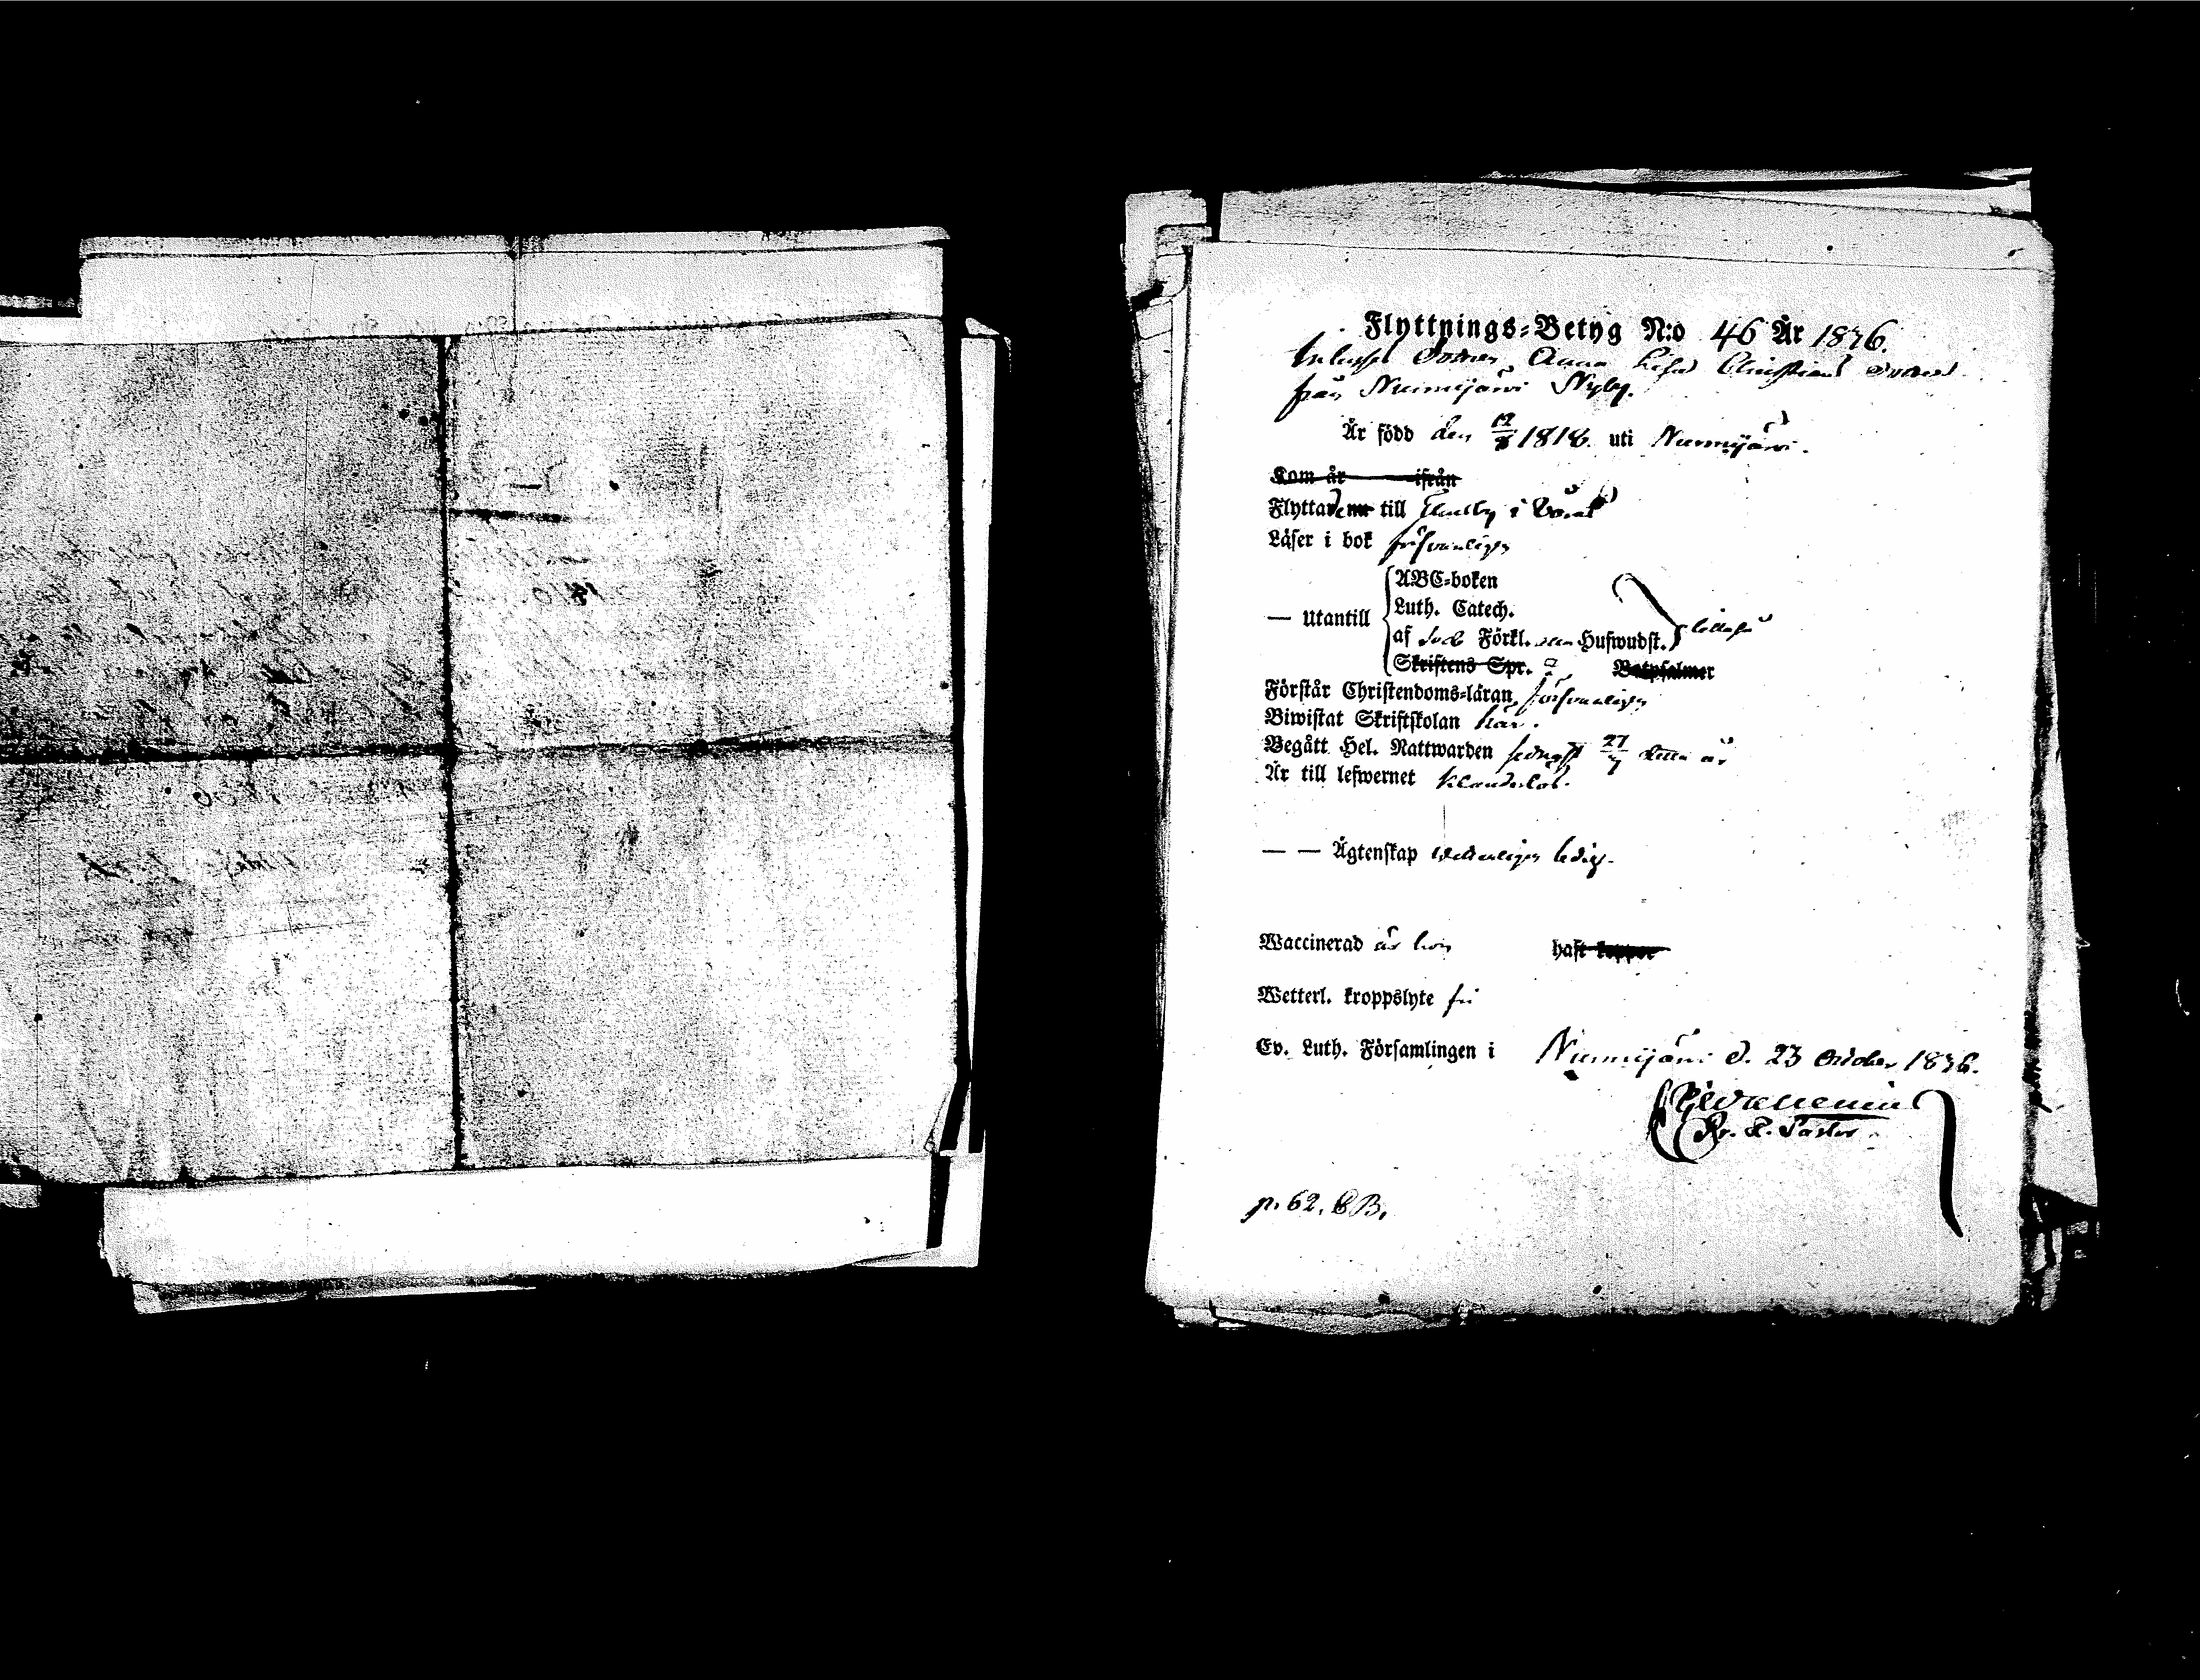 Flyttnings-Betyg N:o 46 År 1836.
Anna Lisa Christians dotter
från Nurmijärvi Nyby.
Är född den 12/8 1818. uti Nurmijärvi.
Kom år ifrån
Flyttar till i Borgå
Läser i bok försvarligen
— Utantill
ABC-boken
Luth. Catech.
af Förkl. Huswudst.
Skriftens Spr. Botpsalmer
Förstår Christendoms-läran försvarligen
Biwistat Skriftskolan här.
Begått Hel. Nattwarden sednast 27/7 detta år
Är till lefwernet klanderlös.
— — Ägtenskap wetterligen ledig.
Waccinerad är hon haft koppor
Wetterl. kroppslyte fri
Ev. Luth. Församlingen i Nurmijärvi d. 23 October 1836.
Pastor.
p. 62.